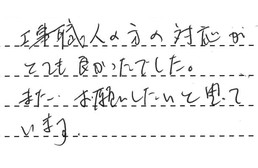 工事職人の方の対応が
とても良かったでした。
また、お願いしたいと思って
います。